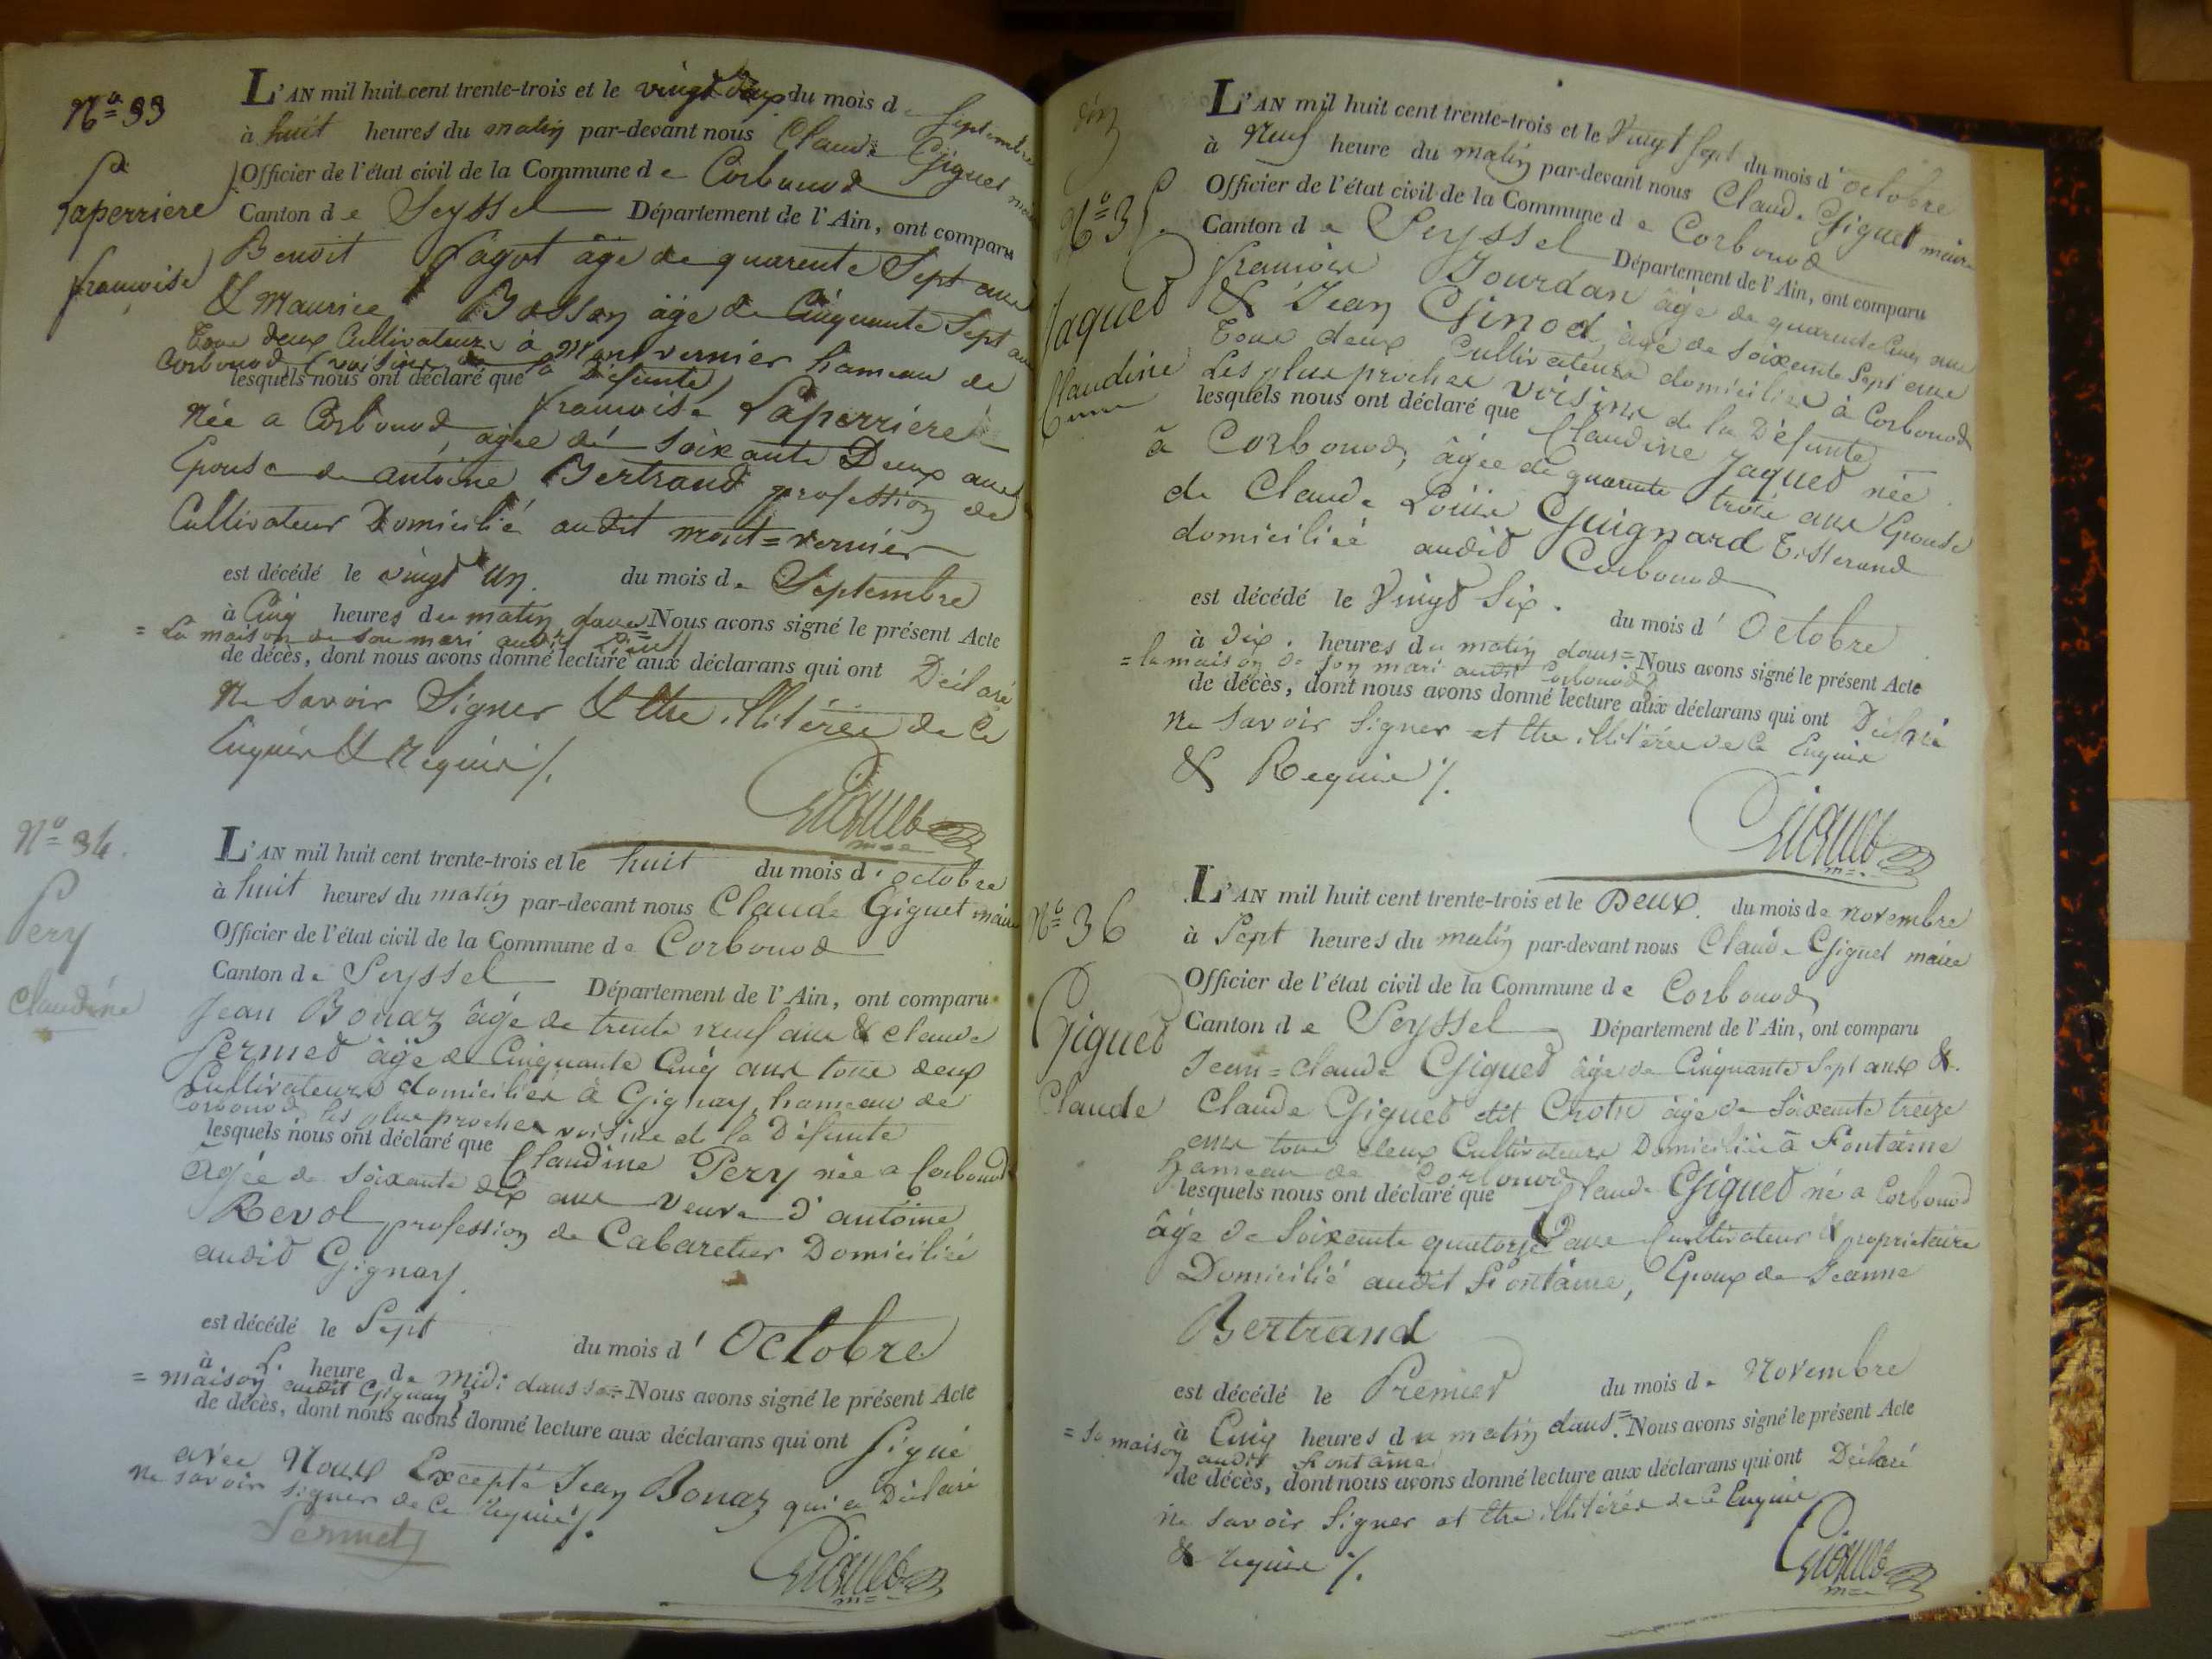 Nº 33
Laperriere
françoise
L'AN mil huit cent trente-trois et le vingt deux du mois de Septembre
à huit heures du matin par-devant nous Claude Giguet maire
Officier de l'état civil de la Commune de Corbonod
Canton de Seyssel Département de l'Ain, ont comparu
Benoit Fagot âgé de quarente Sept ans
& Maurice Bosson âgé de Cinquante Sept ans
Tous deux Cultivateurs à Mont vernier hameau de
Corbonod (voisins de la Défunte)
lesquels nous ont déclaré que françoise Laperriére
Née a Corbonod, âgée de soixante Deux ans
Epouse de antoine Bertrand profession de
Cultivateur Domicilié audit mont=vernier
est décédé le vingt un. du mois de Septembre
à Cinq heures du matin dans = Nous avons signé le présent Acte
= La maison de son mari audit lieu
de décès, dont nous avons donné lecture aux déclarans qui ont Déclaré
Ne Savoir Signer & être illitérés de ce
Enquis & Requis ./.
Giguet
m=e
Nº 34.
Pery
Claudine
L'AN mil huit cent trente-trois et le huit du mois d'octobre
à huit heures du matin par-devant nous Claude Giguet maire
Officier de l'état civil de la Commune de Corbonod
Canton de Seyssel Département de l'Ain, ont comparu
Jean Bonaz âgé de trente neuf ans & claude
Sermet âgé de Cinquante Cinq ans tous deux
Cultivateurs domiciliés à Gignay hameau de
Corbonod, les plus proches voisins de la Défunte
lesquels nous ont déclaré que Claudine Pery née a Corbonod
Agée de soixante dix ans veuve d'antoine
Revol profession de Cabaretier Domicilié
audit Gignay.
est décédé le Sept du mois d'Octobre
à L. heure de midi dans sa = Nous avons signé le présent Acte
= maison audit Gignay
de décès, dont nous avons donné lecture aux déclarans qui ont Signé
avec Nous Excepté Jean Bonaz qui a Déclaré
ne savoir signer de ce requis ./.
Sermet
Giguet
m=e
Nº 35.
Jaquet
Claudine
L'AN mil huit cent trente-trois et le Vingt Sept du mois d'octobre
à Neuf heure du matin par-devant nous Claude Giguet maire
Officier de l'état civil de la Commune de Corbonod
Canton de Seyssel Département de l'Ain, ont comparu
françois Jourdan âgé de quarente Cinq ans
& Jean Ginod, âgé de soixante Sept ans
Tous deux Cultivateurs domiciliés à Corbonod
Les plus proches voisins de la Défunte
lesquels nous ont déclaré que Claudine Jaquet née
à Corbonod, âgée de quarante trois ans Epouse
de Claude Louis Guignard Tisserand
domiciliée audit Corbonod
est décédé le Vingt Six. du mois d'Octobre
à Dix. heures du matin dans = Nous avons signé le présent Acte
= la maison de son mari audit Corbonod
de décès, dont nous avons donné lecture aux déclarans qui ont Déclaré
Ne Savoir Signer et être illitérés de ce Enquis
& Requis ./.
Giguet
m=e
Nº 36
Giguet
Claude
L'AN mil huit cent trente-trois et le Deux. du mois de novembre
à Sept heures du matin par-devant nous Claude Giguet maire
Officier de l'état civil de la Commune de Corbonod
Canton de Seyssel Département de l'Ain, ont comparu
Jean=claude Giguet âgé de Cinquante Sept ans &.
Claude Giguet dit Crotu âgé de Soixante treize
ans tous deux Cultivateurs Domiciliés à Fontaine
hameau de Corbonod
lesquels nous ont déclaré que Claude Giguet né a Corbonod
âgé de Soixante quatorze ans Cultivateur & propriétaire
Domicilié audit Fontaine, Epoux de Jeanne
Bertrand
est décédé le Premier du mois de Novembre
à Cinq heures du matin dans = Nous avons signé le présent Acte
= Sa maison audit Fontaine
de décès, dont nous avons donné lecture aux déclarans qui ont Déclaré
ne savoir Signer et être illitérés de ce Enquis
& requis ./.
Giguet
m=e